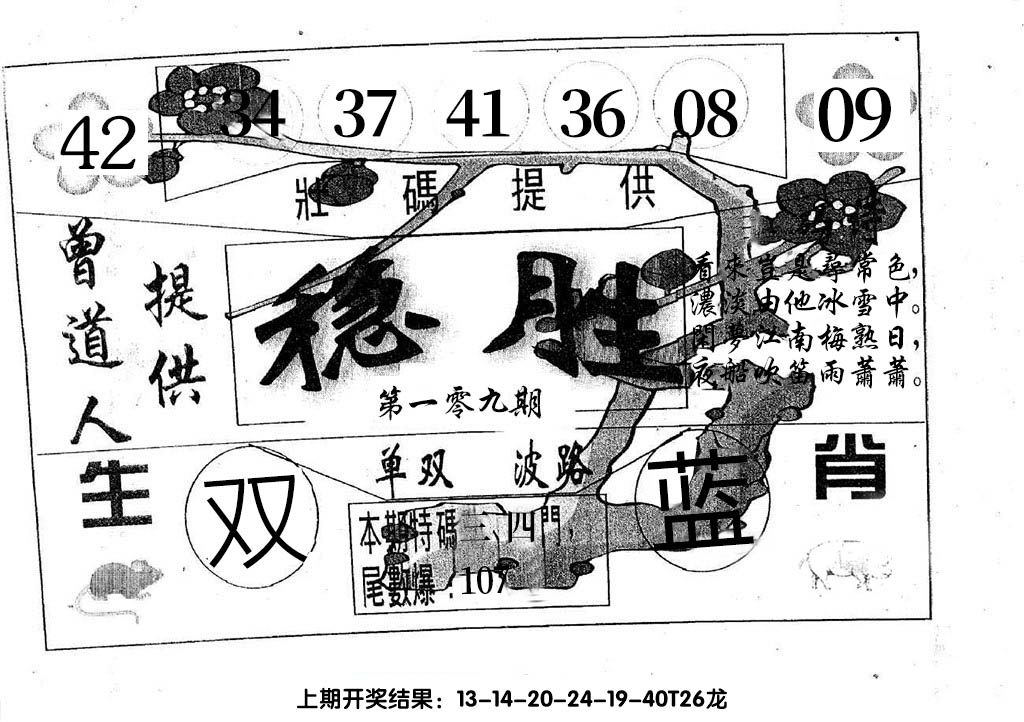 42 34 37 41 36 08 09
壯碼提供
特
曾道人
提供
稳胜
第一零九期
看來豈是尋常色，
濃淡由他冰雪中。
開夢江南梅熟日，
夜船吹笛雨蕭蕭。
生
肖
单双
波路
双
蓝
本期特碼三、四門，
尾數爆：107
上期开奖结果：13-14-20-24-19-40T26龙